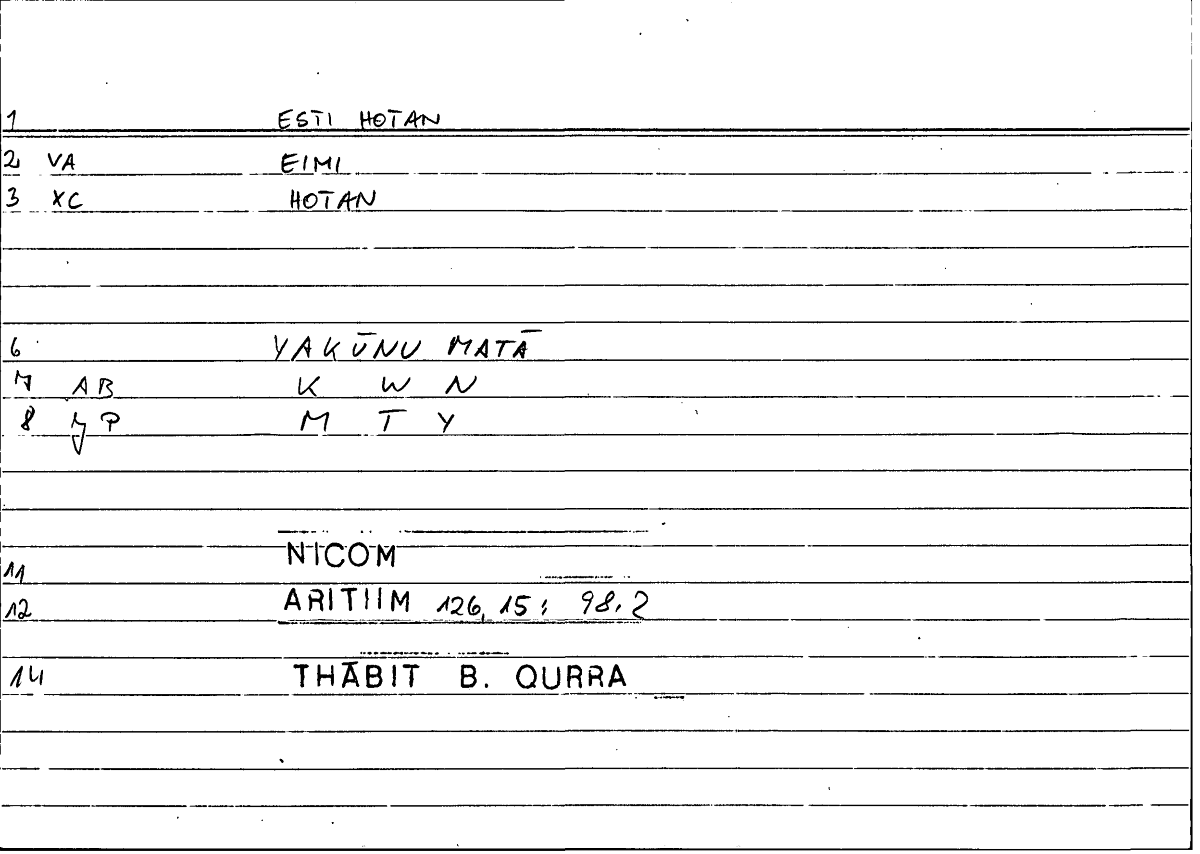 1 ESTI HOTAN
2 VA EIMI
3 XC HOTAN
6 YAKŪNU MATĀ
7 AB K W N
8 P M T Y
11 NICOM
12 ARITIIM 126, 15 : 98, 2
14 THĀBIT B. QURRA